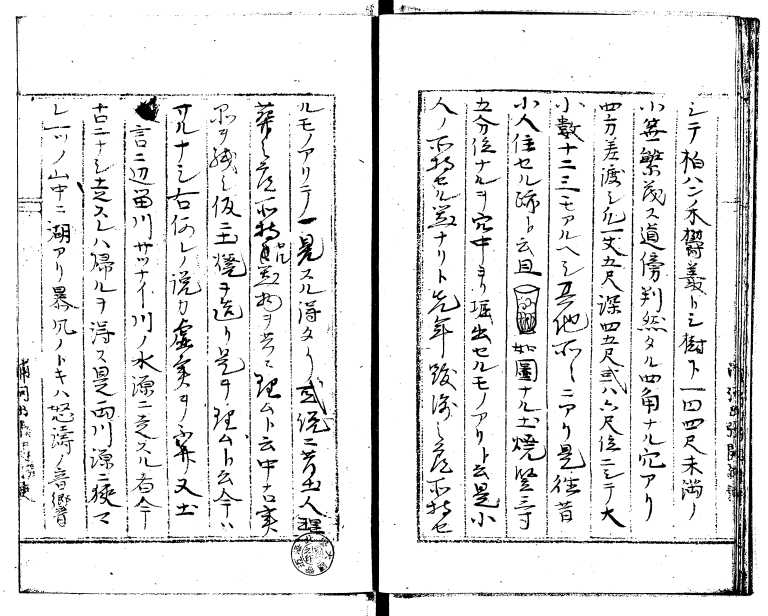 シテ柏ハン木欝蒼トシ樹下一四四尺未満ノ
小笹繁茂ス道傍判然タル四角ナル穴アリ
四方差渡シ凡一丈五尺深四五尺或ハ六尺位ニシテ大
小数十二三モアルヘシ其他所〻ニアリ是往昔
小人住セル跡ト云且如圖ナル土焼竪三寸
五分位ナルヲ穴中ヨリ堀出セルモノアリト云是小
人ノ所持セル器ナリト先年跋渉之度所持セ
ルモノアリテ一見スル得タリ或説ニ昔土人埋
葬之度所持品器物ヲ共ニ埋ムト云中古実
品ヲ残シ仮ニ土焼ヲ造リ是ヲ埋ムト云今ハ
サルナシ右何レノ説カ虚実ヲ不弁又土
言ニ辺留川サツナイ川ノ水源ニ至スル者今
古ニナシ至スレハ帰ルヲ得ス是両川源ニ狭マ
レ一ツノ山中ニ湖アリ暴风ノトキハ怒濤ノ音響